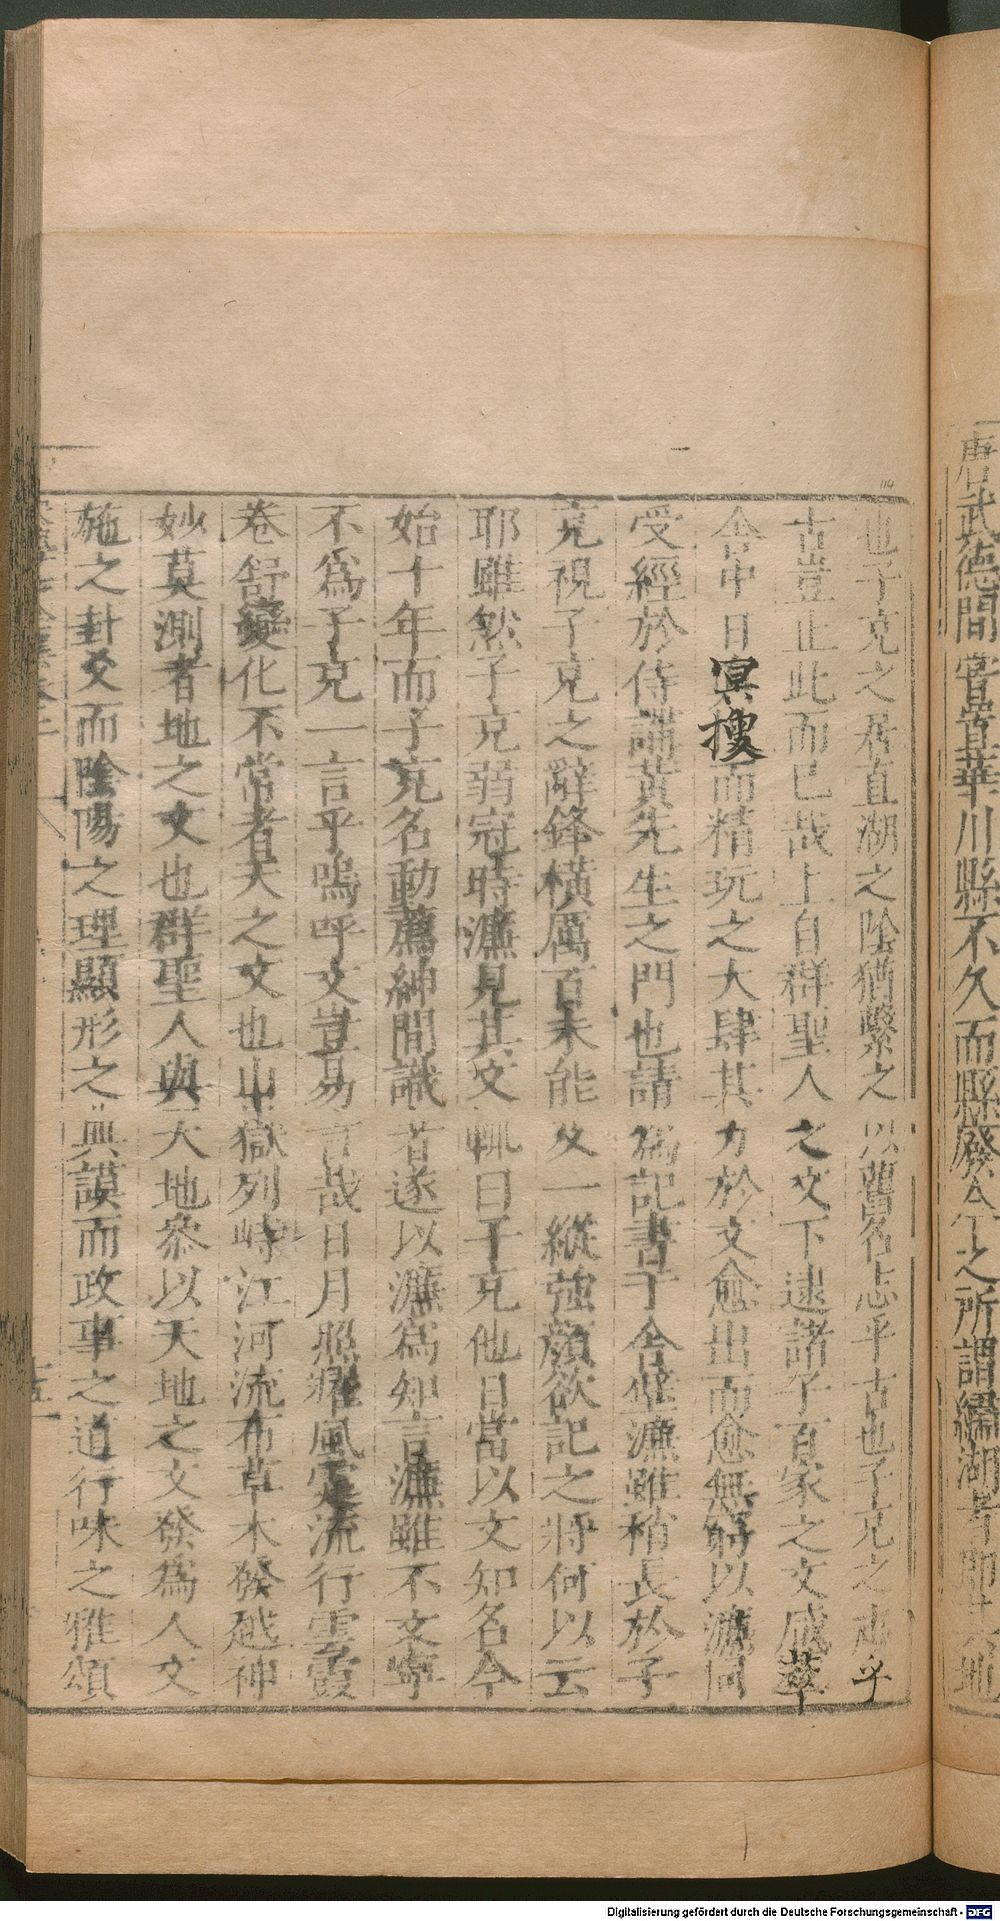 唐武德間嘗置華川縣不久而縣廢今之所謂繡湖者即其地
也子克之居直湖之陰猶繫之以舊名志乎古也子克之志乎
古豈止此而已哉上自群聖人之文下逮諸子百家之文咸萃
舍中日冥搜而精玩之大肆其力於文愈出而愈無窮以濂同
受經於侍講黃先生之門也請為記書于舍壁濂雖稍長於子
克視子克之辭鋒橫厲百未能及一縱強顏欲記之將何以云
耶雖然子克弱冠時濂見其文輒曰子克他日當以文知名今
始十年而子克名動薦紳間識者遂以濂為知言濂雖不文寧
不為子克一言乎嗚呼文豈易言哉日月照耀風霆流行雲霞
卷舒變化不常者天之文也山嶽列峙江河流布草木發越神
妙莫測者地之文也群聖人與天地參以天地之文發為人文
施之卦爻而陰陽之理顯形之典謨而政事之道行咏之雅頌
114
Digitalisierung gefördert durch die Deutsche Forschungsgemeinschaft - DFG